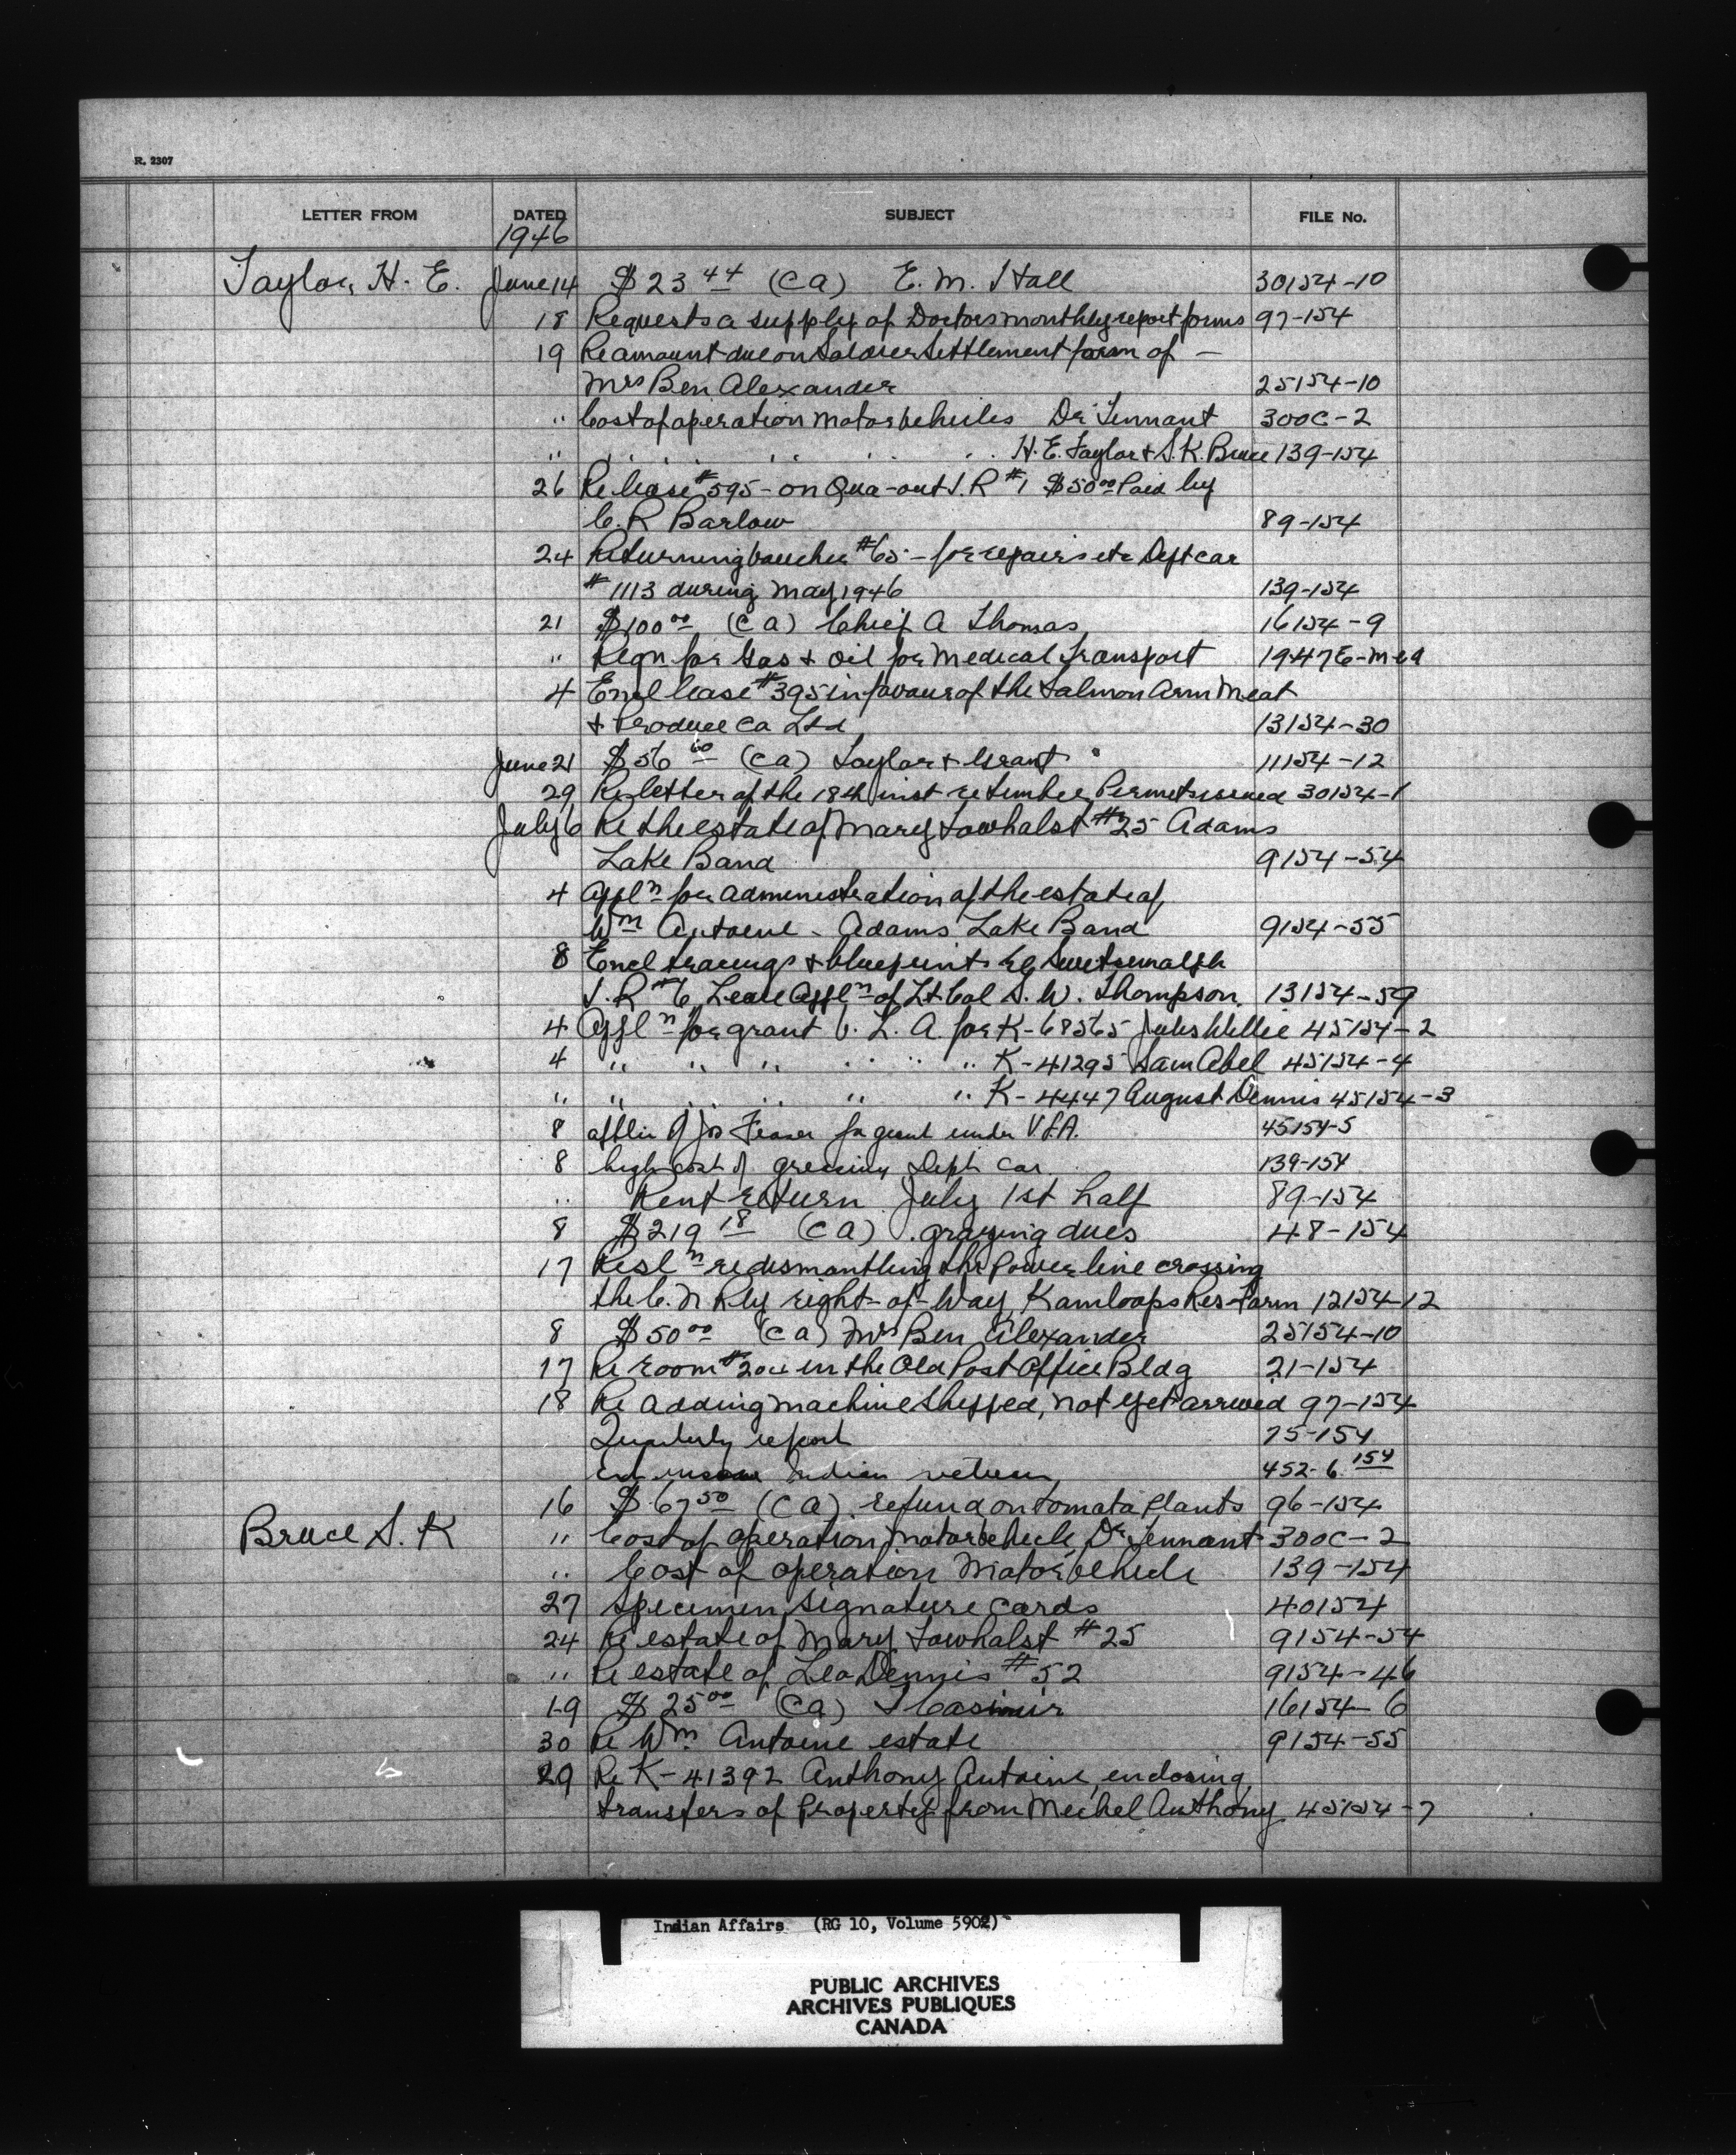 R. 2307
LETTER FROM DATED SUBJECT FILE No.
1946
Taylor, H. E. June 14 $23 44 (Ca) E. M. Hall 30154-10
18 Requests a supply of Doctors monthly report forms 97-154
19 Re amount due on Soldier Settlement farm of —
Mrs Ben Alexander 25154-10
" Cost of operation motor vehicles Dr Tennant 300C-2
" " " " " " H. E. Taylor & S. K. Bruce 139-154
26 Re lease #595 - on Qua-out I. R #1 $50 00 Paid by
C. R Barlow 89-154
24 Returning voucher #65 - for repairs etc Dept car
#1113 during May, 1946 139-154
21 $100 00 (Ca) Chief A Thomas 16154-9
" Reqn for Gas & Oil for Medical Transport 1947E-Med
4 Encl lease #395 in favour of the Salmon Arm Meat
& Produce Co Ltd 13154-30
June 21 $56 60 (Ca) Taylor & Grant 11154-12
29 Re letter of the 18th inst re timber Permits issued 30154-1
July 6 Re the estate of Mary Towhalst #25 Adams
Lake Band 9154-54
4 Appln for administration of the estate of
Wm Antoine - Adams Lake Band 9154-55
8 Encl tracings & blueprints re Switsemalph
I. R #6 Lease Appln of Lt Col S. W. Thompson 13154-59
4 Appln for grant V. L. A for K-68565 Jules Willie 45154-2
4 " " " " " " K-41295 Sam Abel 45154-4
" " " " " " K-4447 August Dennis 45154-3
8 applic of Jos Fraser for grant under V.L.A. 45154-5
8 high cost of greasing Dept car 139-154
" Rent return July 1st half 89-154
8 $219 18 (Ca) grazing dues 48-154
17 Resln re dismantling the Power line crossing
the C. N Rly right-of-way, Kamloops Res-Farm 12154-12
8 $50 00 (Ca) Mrs Ben Alexander 25154-10
17 Re room # in the Old Post Office Bldg 21-154
18 Re adding machine shipped, not yet arrived 97-154
Quarterly report 75-154
Indian return 452-6 154
16 $67 50 (Ca) refund on tomato plants 96-154
Bruce S. K " Cost of operation motor vehicle, Dr Tennant 300C-2
" Cost of operation Motor vehicle 139-154
27 Specimen Signature Cards 40154
24 Re estate of Mary Towhalst #25 9154-54
" Re estate of Leo Dennis #52 9154-46
19 $25 00 (Ca) Casimir 16154-6
30 Re Wm Antoine estate 9154-55
29 Re K-41392 Anthony Antoine, enclosing
transfers of Property from Michel Anthony 45154-7
Indian Affairs (RG 10, Volume 5902)
PUBLIC ARCHIVES
ARCHIVES PUBLIQUES
CANADA